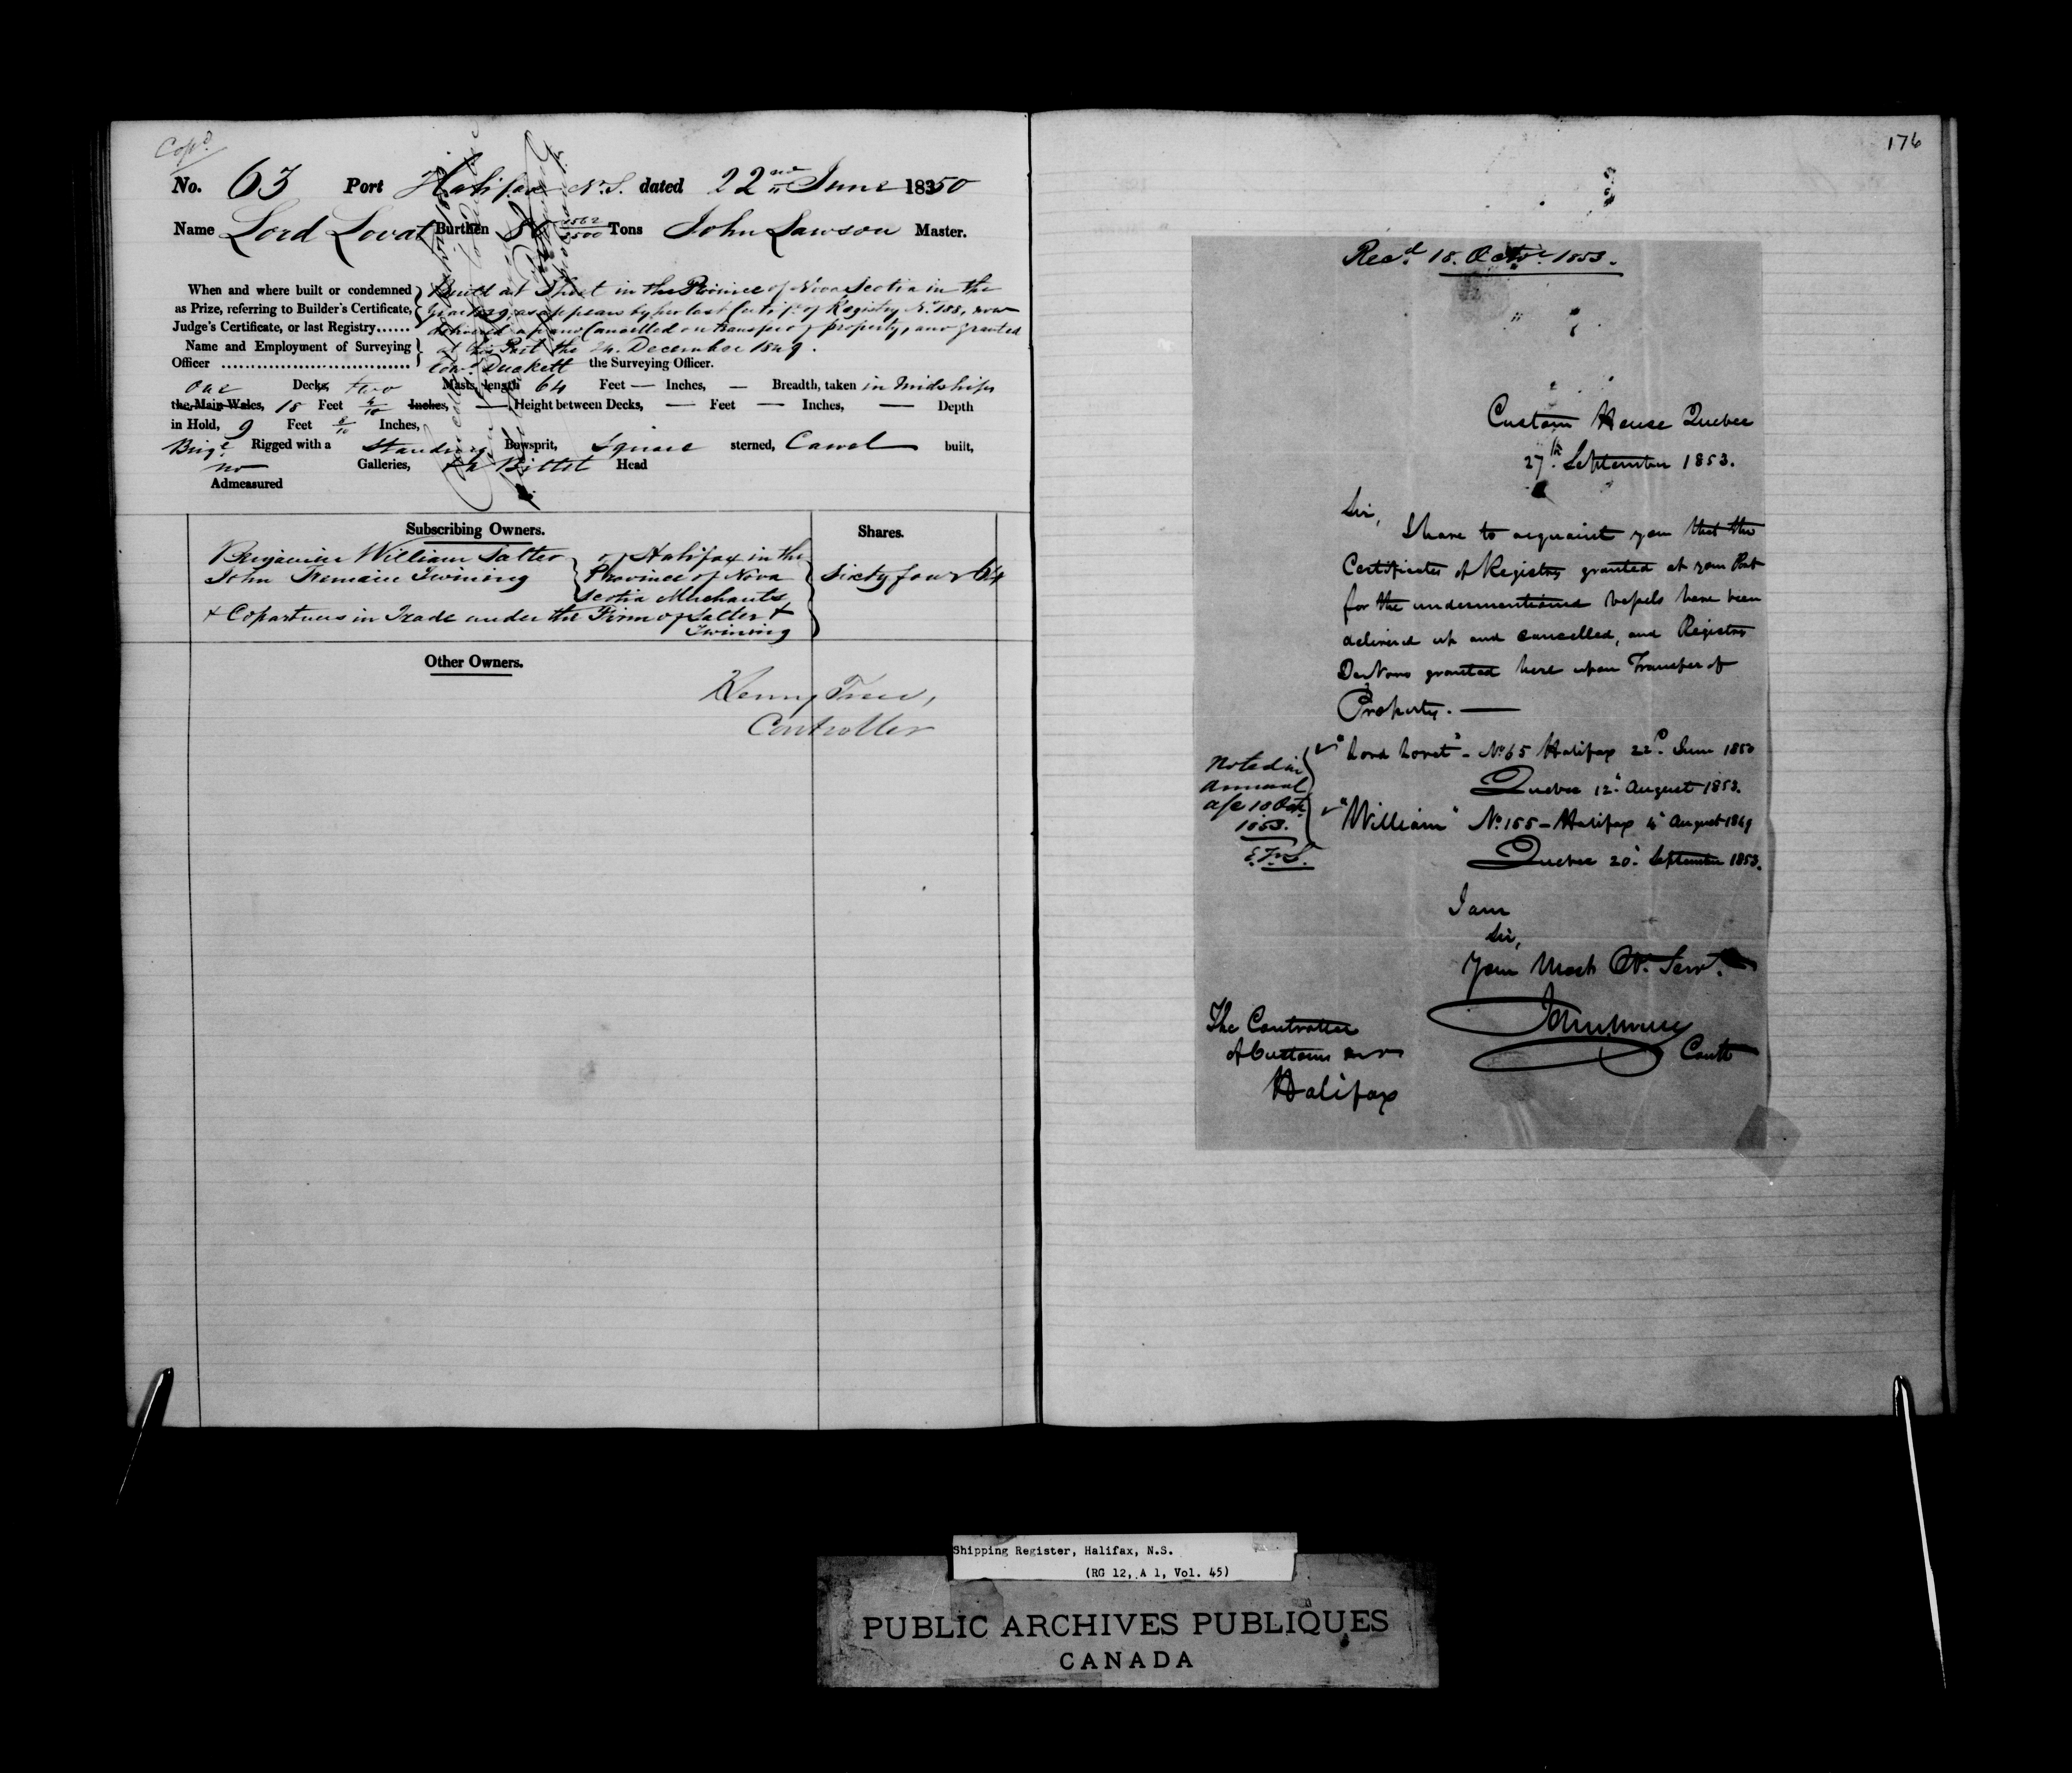 Cop^d
No. 63 Port Halifax N.S. dated 22nd June 18350
Name Lord Lovat Burthen 80 1562/3500 Tons John Lawson Master.
When and where built or condemned
as Prize, referring to Builder's Certificate,
Judge's Certificate, or last Registry......
Built at Sheet in the Province of Nova Scotia in the
as appears by her last Certif. of Registry No. 188, now
delivered up and Cancelled on transfer of property, and granted
at this Port the 24. December 1849.
Name and Employment of Surveying
Officer ................................
Duckett the Surveying Officer.
one Decks, two Masts, length 64 Feet — Inches, — Breadth, taken in Midships
the Main Wales, 18 Feet 4/10 Inches, — Height between Decks, — Feet — Inches, — Depth
in Hold, 9 Feet 8/10 Inches,
Brigt Rigged with a Standing Bowsprit, Square sterned, Carvel built,
no Galleries, Billet Head
Admeasured
Subscribing Owners.
Shares.
Benjamin William Salter
John Tremain Twining
of Halifax in the
Province of Nova
Scotia Merchants
Sixty four 64
& Copartners in Trade under the Firm of Salter &
Twining
Other Owners.
Henny Trew,
Controller
176
Recd. 18. Octr. 1853.
Custom House Quebec
27th September 1853.
Sir,
I have to acquaint you that the
Certificates of Registry granted at your Port
for the undermentioned Vessels have been
delivered up and cancelled, and Registers
De Novo granted here upon Transfer of
Property. —
"Lord Lovat" - No. 65 Halifax 22d. June 1850
Quebec 12. August 1853.
"William" No. 155 - Halifax 4 August 1849
Quebec 20. September 1853.
Noted in
Annual
a/c 18 Oct.
1853.
I am
Sir,
Your Most Ob. Servt.
Contr
The Controller
of Customs
Halifax
Shipping Register, Halifax, N.S.
(RG 12, A 1, Vol. 45)
PUBLIC ARCHIVES PUBLIQUES
CANADA